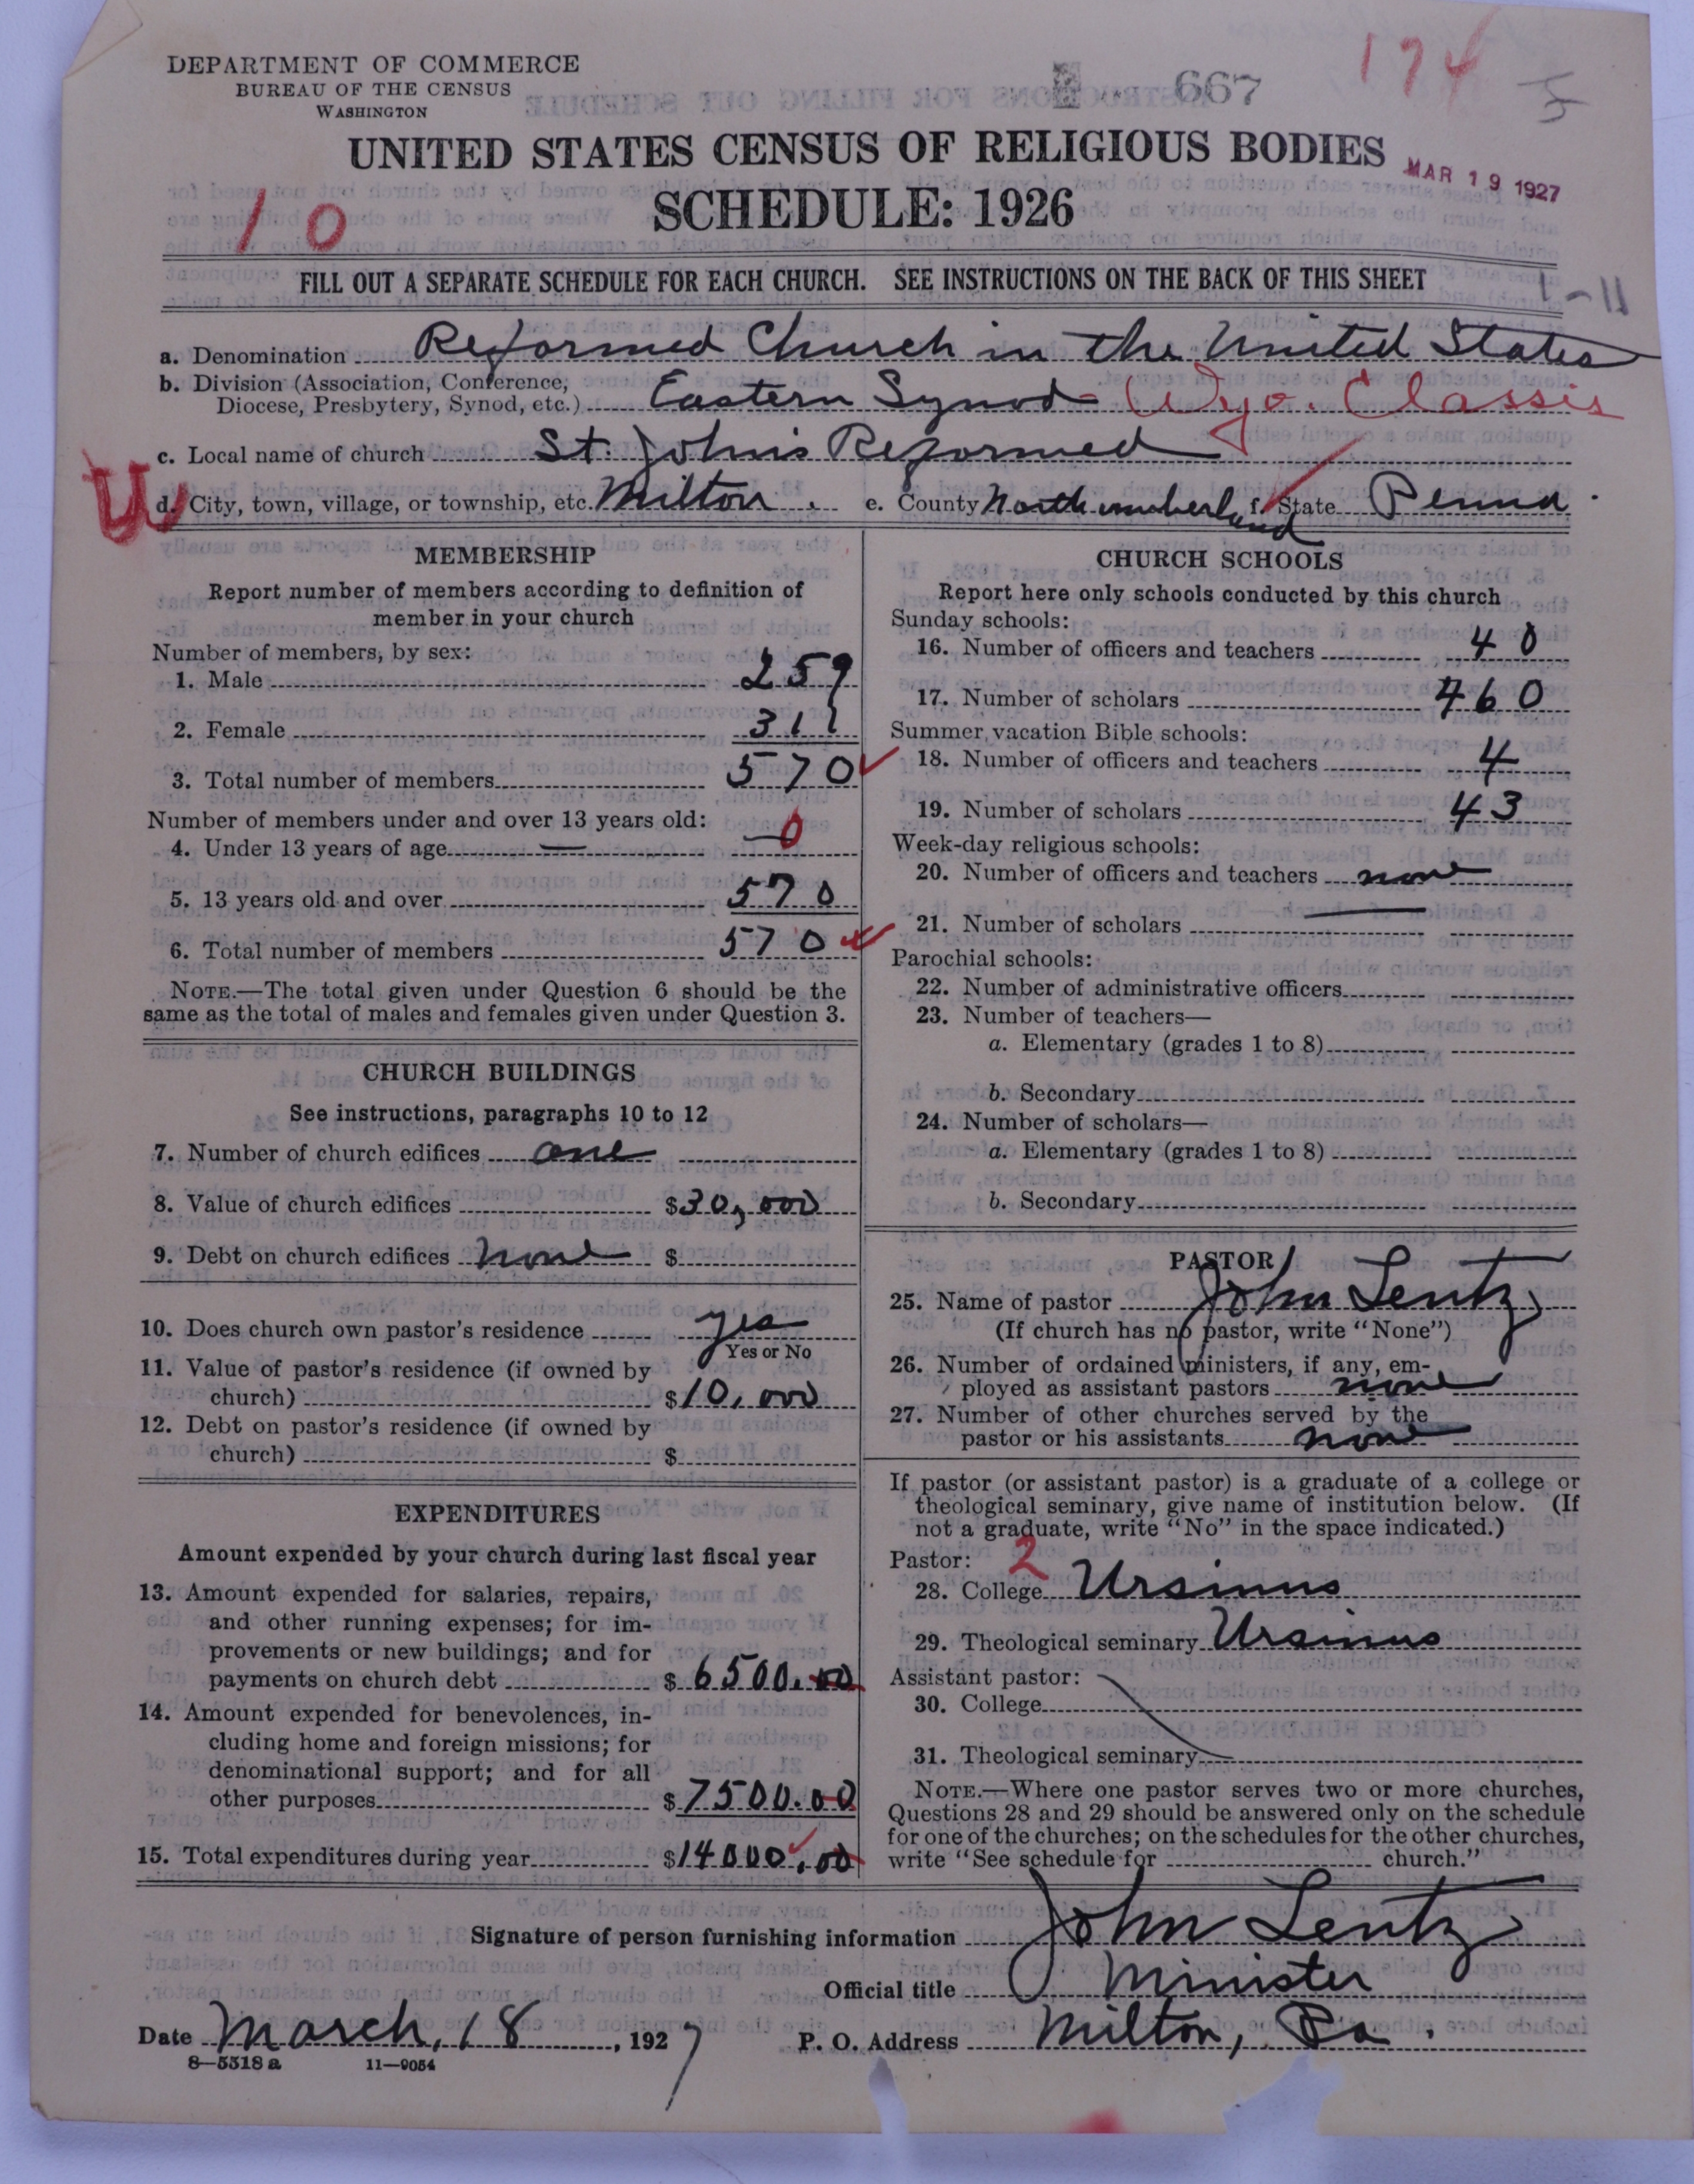 DEPARTMENT OF COMMERCE
BUREAU OF THE CENSUS
WASHINGTON
667
174
UNITED STATES CENSUS OF RELIGIOUS BODIES
MAR 19 1927
SCHEDULE: 1926
10
FILL OUT A SEPARATE SCHEDULE FOR EACH CHURCH. SEE INSTRUCTIONS ON THE BACK OF THIS SHEET
1-11
a. Denomination Reformed Church in the United States
b. Division (Association, Conference,
Diocese, Presbytery, Synod, etc.) Eastern Synod - Wyo. Classis
c. Local name of church St. John's Reformed
U
d. City, town, village, or township, etc. Milton, e. County Northumberland f. State Penna.
MEMBERSHIP
Report number of members according to definition of
member in your church
Number of members, by sex:
1. Male 259
2. Female 311
3. Total number of members 570
Number of members under and over 13 years old:
4. Under 13 years of age — 0
5. 13 years old and over 570
6. Total number of members 570
NOTE.—The total given under Question 6 should be the
same as the total of males and females given under Question 3.
CHURCH BUILDINGS
See instructions, paragraphs 10 to 12
7. Number of church edifices one
8. Value of church edifices $30,000
9. Debt on church edifices none $
10. Does church own pastor's residence yes
Yes or No
11. Value of pastor's residence (if owned by
church) $10,000
12. Debt on pastor's residence (if owned by
church) $
EXPENDITURES
Amount expended by your church during last fiscal year
13. Amount expended for salaries, repairs,
and other running expenses; for im-
provements or new buildings; and for
payments on church debt $6500.00
14. Amount expended for benevolences, in-
cluding home and foreign missions; for
denominational support; and for all
other purposes $7500.00
15. Total expenditures during year $14000.00
CHURCH SCHOOLS
Report here only schools conducted by this church
Sunday schools:
16. Number of officers and teachers 40
17. Number of scholars 460
Summer vacation Bible schools:
18. Number of officers and teachers 4
19. Number of scholars 43
Week-day religious schools:
20. Number of officers and teachers none
21. Number of scholars
Parochial schools:
22. Number of administrative officers
23. Number of teachers—
a. Elementary (grades 1 to 8)
b. Secondary
24. Number of scholars—
a. Elementary (grades 1 to 8)
b. Secondary
PASTOR
25. Name of pastor John Lentz
(If church has no pastor, write "None")
26. Number of ordained ministers, if any, em-
ployed as assistant pastors none
27. Number of other churches served by the
pastor or his assistants none
If pastor (or assistant pastor) is a graduate of a college or
theological seminary, give name of institution below. (If
not a graduate, write "No" in the space indicated.)
Pastor: 2
28. College Ursinus
29. Theological seminary Ursinus
Assistant pastor:
30. College
31. Theological seminary
NOTE.—Where one pastor serves two or more churches,
Questions 28 and 29 should be answered only on the schedule
for one of the churches; on the schedules for the other churches,
write "See schedule for church."
Signature of person furnishing information John Lentz
Official title Minister
Date March, 18, 1927 P. O. Address Milton, Pa.
8—5518 a 11—9054